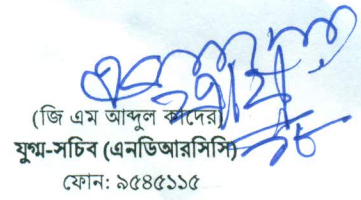 (জি এম আব্দুল কাদের)
যুগ্ম-সচিব (এনডিআরসিসি)
ফোন: ৯৫৪৫১১৫